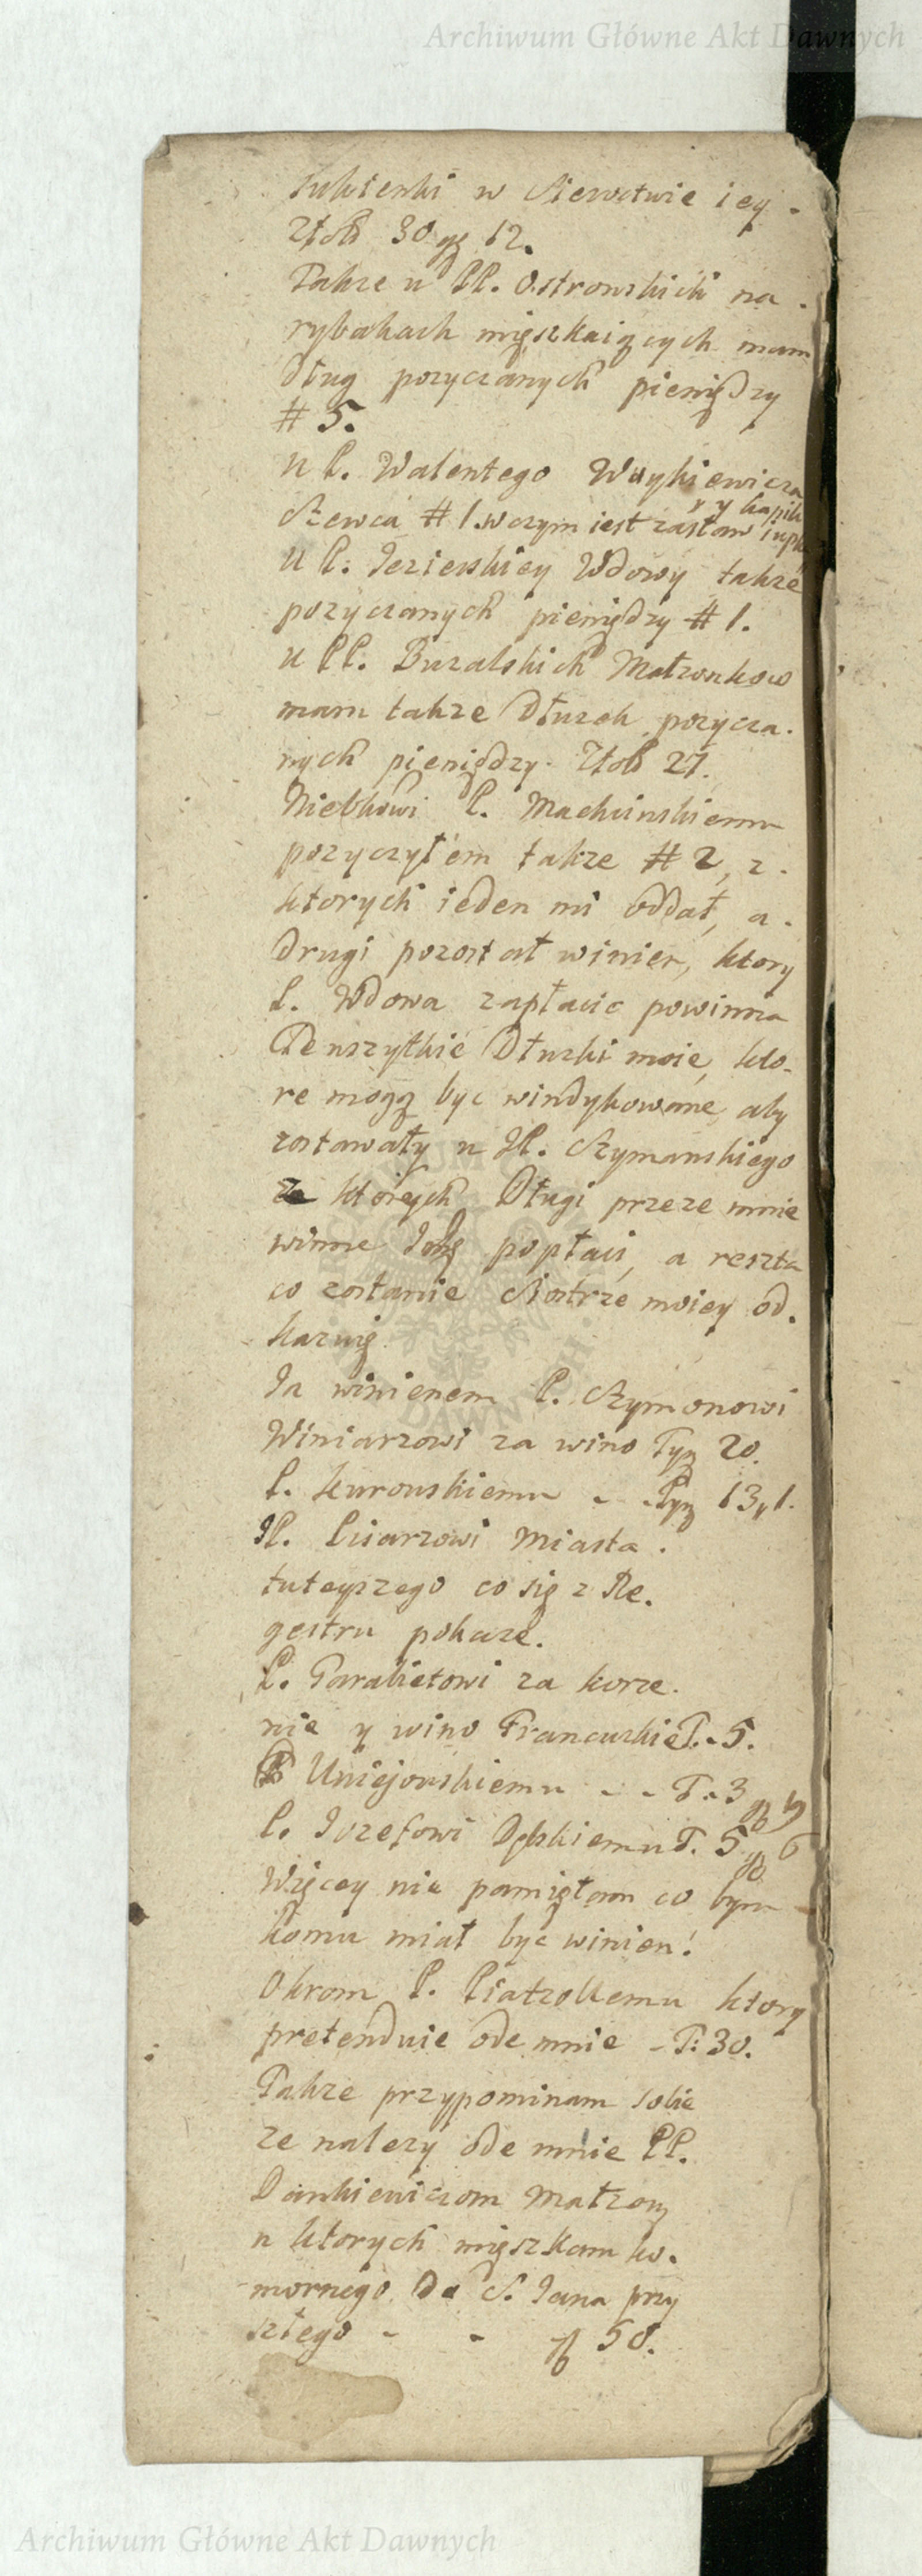 Archiwum Główne Akt Dawnych
Sukienki w Sieroctwie iey
Złott 30 gr 12.
Takze u PP. Ostrowskich na
rybakach mięszkaiących mam
dług pozyczanych pieniędzy
# 5.
u P. Walentego Woykiewicza
Szewca # 1. w czym iest zastaw
u P. Jezierskiey Wdowy takze
pozyczanych pieniędzy # 1.
u PP. Buzalskich Małzonkow
mam takze Dłuzek pozycza.
nych pieniędzy. Złott 27.
P. Machinskiemu
pozyczyłem takze # 2, z
ktorych ieden mi oddał, a
drugi pozostał winien, ktory
P. Wdowa zapłacic powinna
Te wszytkie Dłuzki moie, kto-
re mogą byc windykowane, aby
zostawały u JP. Szymanskiego
z ktorych Długi przeze mnie
winne popłaci, a reszta
co zostanie Siostrze moiey od.
kazuię
Ja winienem P. Szymonowi
Winiarzowi za wino Tyn 20.
P. Kurowskiemu - - Tyn 13,1.
JP. Pisarzowi Miasta
tuteyszego co się z Re.
gestru pokaze.
P. Parabietowi za korze.
nie y wino Francuskie T. - 5.
P Uniejowskiemu - - T. 3 9
P. Jozefowi Dębskiemu T. 5 6
Więcey nie pamiętam co bym
komu miał być winien!
Okrom P. ktory
pretenduie ode mnie - T: 30.
Takze przypominam sobie
ze nalezy ode mnie PP.
Dankiewiczom Małzon
u ktorych mięszkam ko.
mornego Do S. Jana przy
szłego - - 58.
Archiwum Główne Akt Dawnych